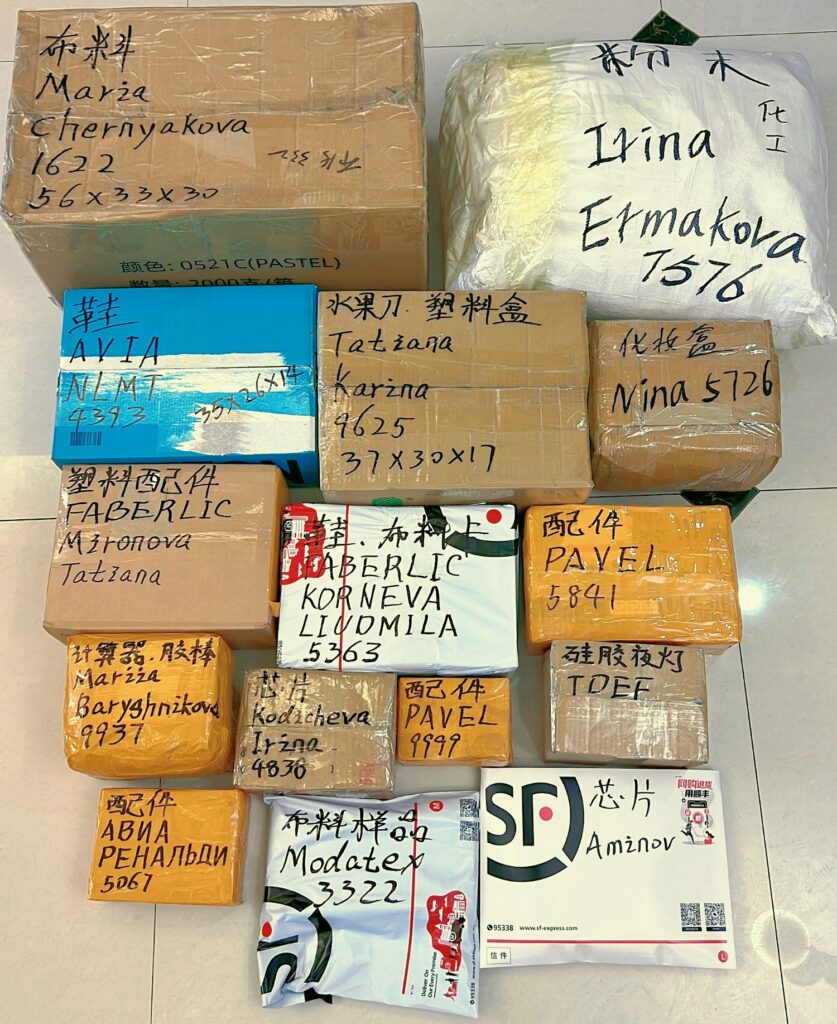 布料
Maria
Chernyakova
1622
56×33×30
颜色: 0521C(PASTEL)
数量: 2000克/箱
粉末
化工
Irina
Ermakova
7576
鞋
AVIA
NLMT
4393
35×26×14
水果刀.塑料盒
Tatiana
Karina
9625
37×30×17
化妆盒
Nina 5726
塑料配件
FABERLIC
Mironova
Tatiana
鞋.布料卡
FABERLIC
KORNEVA
LIUDMILA
5363
配件
PAVEL
5841
计算器.胶棒
Mariia
Baryghnikova
9937
芯片
Kodicheva
Irina
4838
配件
PAVEL
9999
硅胶夜灯
TDEF
配件
АВИА
РЕНАЛЬДИ
5067
布料样品
Modatex
3322
SF
Deliver On
Our Every Promise
95338
M
SF
芯片
Aminov
网购退货
用顺丰
95338 www.sf-express.com
信件
L